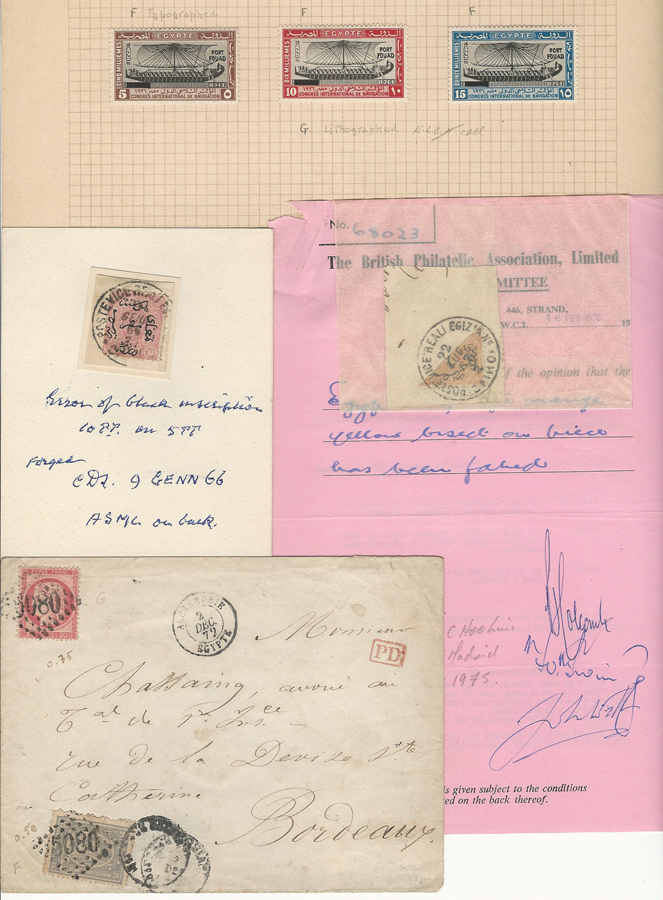 F Typographed
F
F
الدولة المصرية
EGYPTE
PORT FOUAD
5
CONGRES INTERNATIONAL DE NAVIGATION
EGYPTE
PORT FOUAD
DIX MILLIEMES
10
CONGRES INTERNATIONAL DE NAVIGATION
EGYPTE
PORT FOUAD
QUINZE MILLIEMES
15
CONGRES INTERNATIONAL DE NAVIGATION
G. Lithographed
No. 68023
The British Philatelic Association, Limited
MITTEE
446, STRAND,
W.C.2. 16 FEB 1970 19
of the opinion that the
orange
yellow bisect on piece
has been faked
POSTE VICE REALI
VICE REALI EGIZIANE
22
Error of black inscription
10 PT. on 5 PT
Forged
CDS. 9 GENN 66
ASML on back.
5080
ALEXANDRIE
2
DEC.
72
EGYPTE
PD
0.75
G
Monsieur
Chassaing, avoué au
Tal de 1re Insce
rue de la Devise Ste
Catherine
Bordeaux
0.50
F
5080
C Hoskins
Madrid
1975.
is given subject to the conditions
ed on the back thereof.